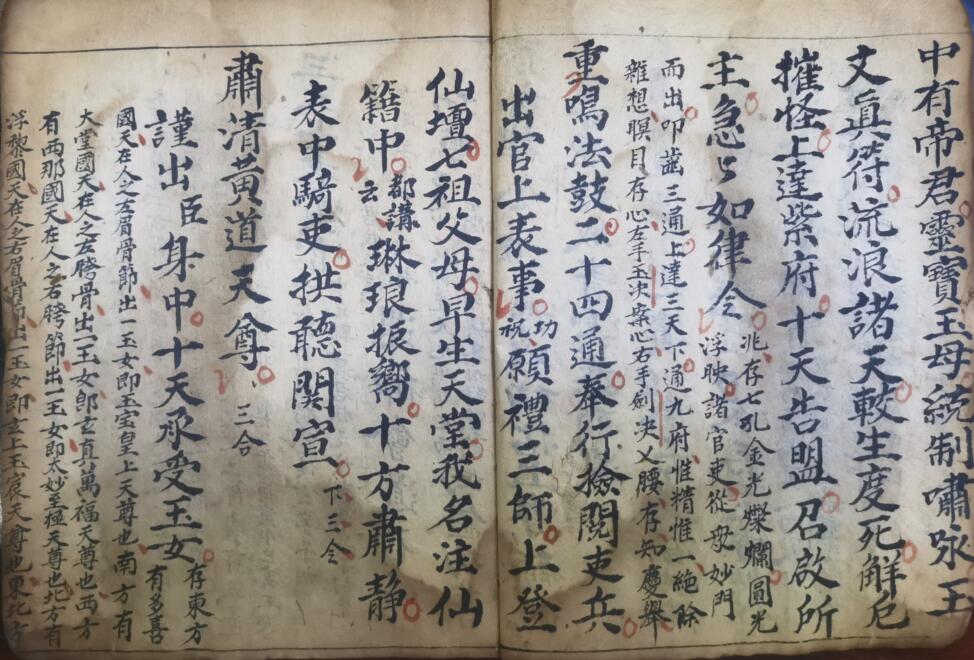 中有帝君靈寶玉母統制嘯咏玉
文真符流浪諸天較生度死解厄
摧怪上達紫府十天告盟召啟所
主急〻如律令 兆存七孔金光爍爛圓光
浮映諸官吏從毋妙門
而出叩齒三通上達三天下通九府惟精惟一絕除
雜想瞑目存心左手玉決案心右手劍决乂腰存知慶舉
重鳴法鼓二十四通奉行撿閱吏兵
出官上表事 功祝 願禮三師上登
仙壇七祖父母早生天堂我名注仙
籍中 都講云 琳琅振嚮十方肅静
表中騎吏拱聽関宣 下三仝
肅清黃道天尊 三合
謹出臣身中十天承受玉女 存東方有多喜
國天在人之左眉骨節出一玉女即玉宝皇上天尊也南方有
大堂國天在人之左胯骨出一玉女郎玄真萬福天尊也西方
有西那國天在人之右胯節出一玉女即太妙至極天尊也北方有
浮黎國天在人之右眉骨節出一玉女即玄上玉宸天尊也東北方